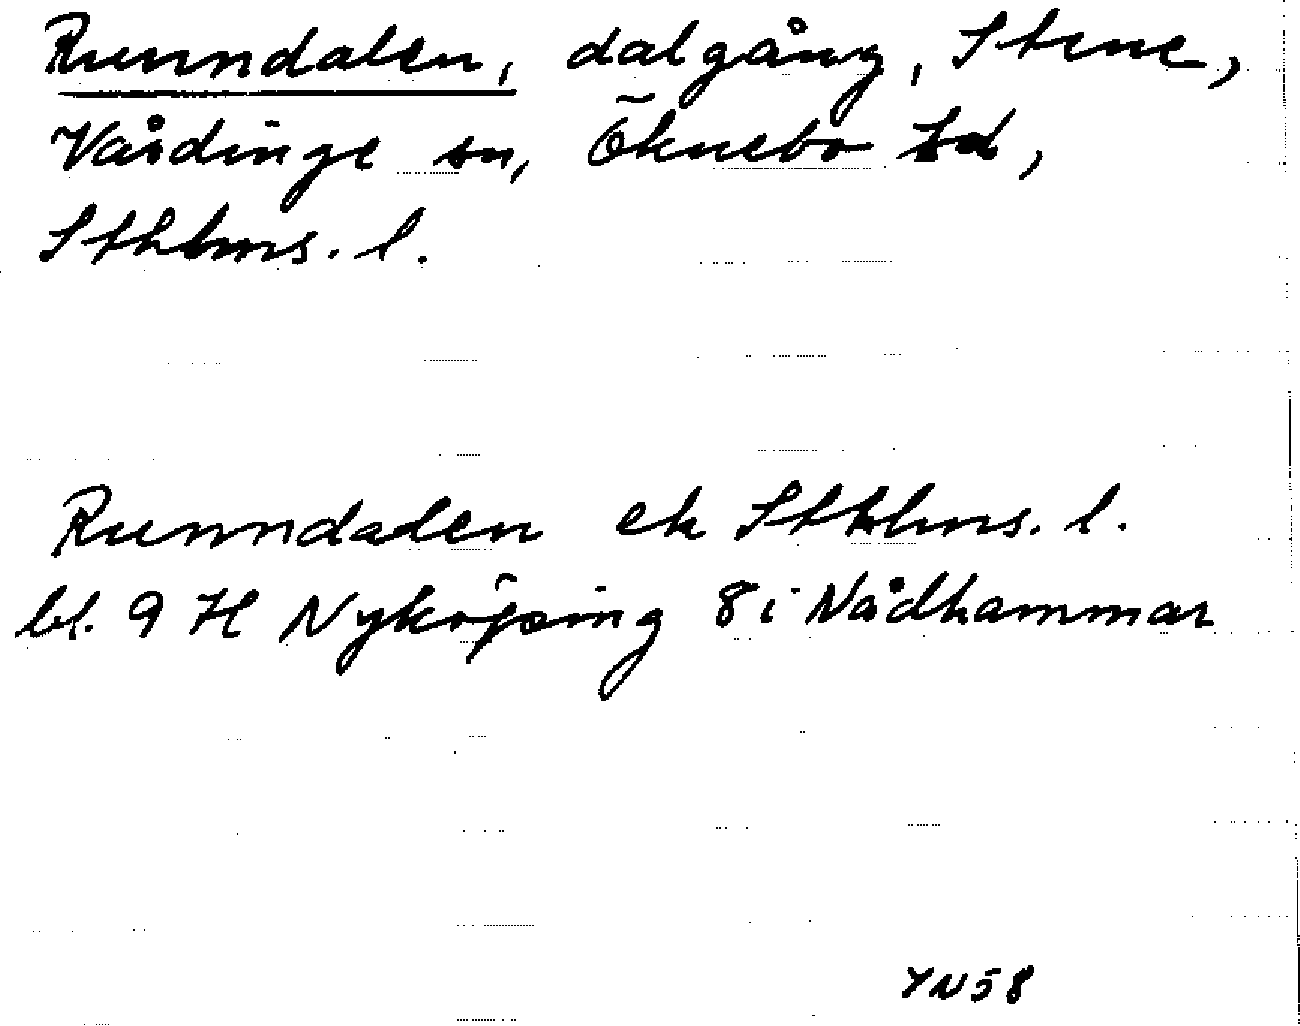 Runndalen, dalgång, Stene,
Vårdinge sn, Öknebo hd,
Sthlms. l.
Runndalen ek Sthlms. l.
bl. 9 H Nyköping 8i Nådhammar
YN58